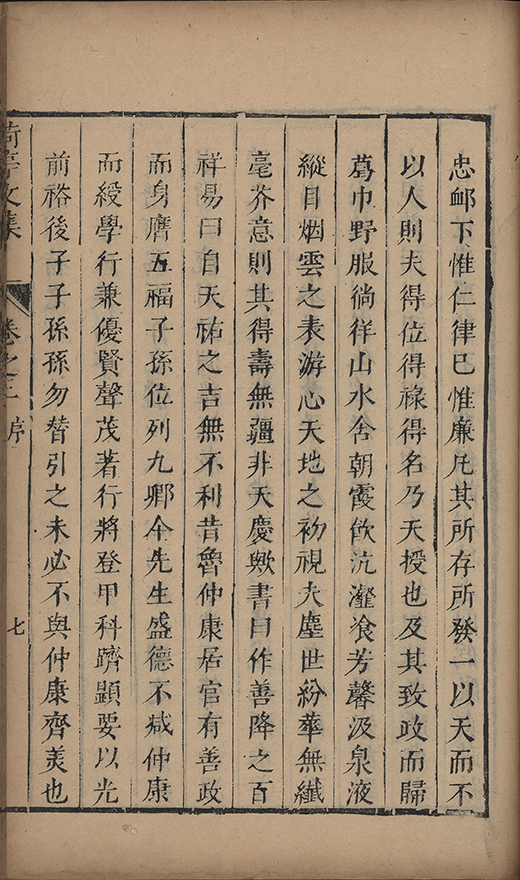 忠邮下惟仁律已惟廉凡其所存所發一以天而不
以人則夫得位得祿得名乃天授也及其致政而歸
葛巾野服徜徉山水含朝霞飲沆瀣飡芳馨汲泉液
縱目烟雲之表游心天地之初視夫塵世紛華無纖
毫芥意則其得壽無疆非天慶歟書曰作善降之百
祥易曰自天祐之吉無不利昔魯仲康居官有善政
而身膺五福子孫位列九卿今先生盛德不减仲康
而綬學行兼優賢聲茂著行將登甲科躋顯要以光
前裕後子子孫孫勿替引之未必不與仲康齊羙也
荷亭文集 卷之三 序 七